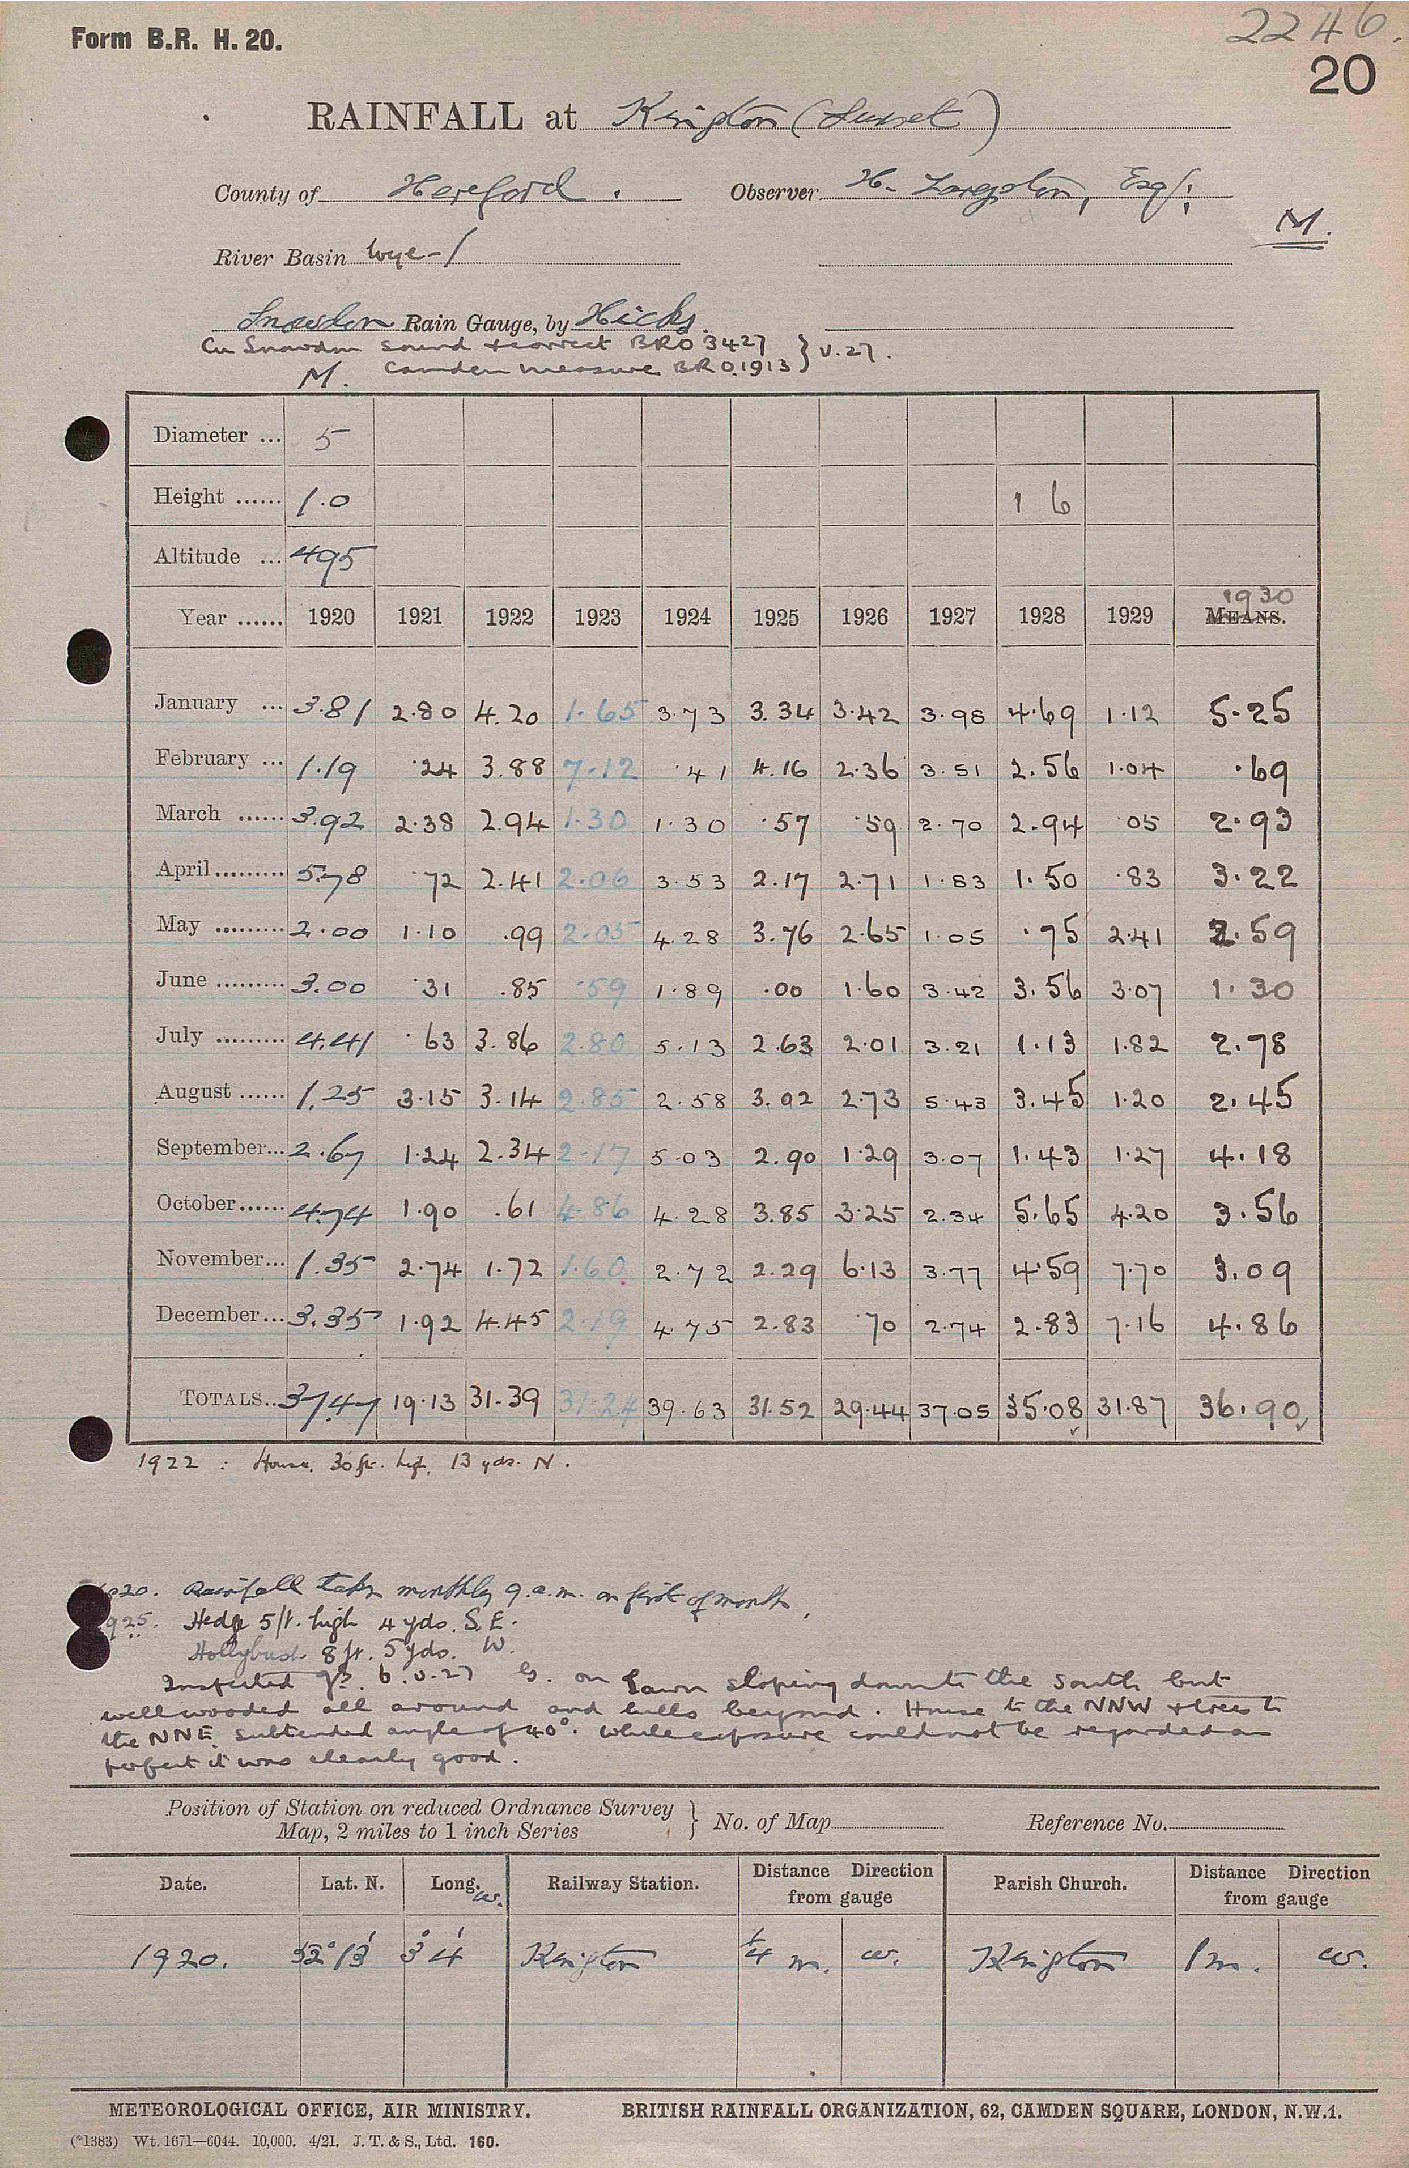 Form B.R. H. 20.
2246.
20
RAINFALL at Kington (Sunset)
County of Hereford . Observer H. Langston, Esq;
M.
River Basin Wye-1
Snowdon Rain Gauge, by Hicks.
Cu Snowdon sound & correct BRO 3427 } v.27.
M. Camden measure BRO.1913
Diameter ... 5
Height ...... 1.0 1 6
Altitude ... 495
Year ...... 1920 1921 1922 1923 1924 1925 1926 1927 1928 1929 1930 MEANS.
January ... 3.81 2.80 4.20 1.65 3.73 3.34 3.42 3.98 4.69 1.12 5.25
February ... 1.19 .24 3.88 7.12 .41 4.16 2.36 3.51 2.56 1.04 .69
March ...... 3.92 2.38 2.94 1.30 1.30 .57 .59 2.70 2.94 .05 2.93
April......... 5.78 .72 2.41 2.06 3.53 2.17 2.71 1.83 1.50 .83 3.22
May ......... 2.00 1.10 .99 2.05 4.28 3.76 2.65 1.05 .75 2.41 2.59
June ......... 3.00 .31 .85 .59 1.89 .00 1.60 3.42 3.56 3.07 1.30
July ......... 4.41 .63 3.86 2.80 5.13 2.63 2.01 3.21 1.13 1.82 2.78
August ...... 1.25 3.15 3.14 2.85 2.58 3.02 2.73 5.43 3.45 1.20 2.45
September... 2.67 1.24 2.34 2.17 5.03 2.90 1.29 3.07 1.43 1.27 4.18
October...... 4.74 1.90 .61 4.86 4.28 3.85 3.25 2.34 5.65 4.20 3.56
November... 1.35 2.74 1.72 1.60 2.72 2.29 6.13 3.77 4.59 7.70 3.09
December... 3.35 1.92 4.45 2.19 4.75 2.83 .70 2.74 2.83 7.16 4.86
TOTALS.. 37.47 19.13 31.39 31.24 39.63 31.52 29.44 37.05 35.08 31.87 36.90
1922 : House, 30 ft. high, 13 yds. N.
1920. Rainfall taken monthly 9 a.m. on first of month.
1925. Hedge 5 ft. high 4 yds. S.E.
Hollybush 8 ft. 5 yds. W.
Inspected 6.v.27 G. on lawn sloping down to the South but
well wooded all around and hills beyond. House to the NNW & trees to
the NNE subtended angle of 40°. While exposure could not be regarded as
perfect it was clearly good.
Position of Station on reduced Ordnance Survey } No. of Map Reference No.
Map, 2 miles to 1 inch Series
Date. Lat. N. Long. W. Railway Station. Distance Direction from gauge Parish Church. Distance Direction from gauge
1920. 52° 13' 3° 4' Kington 1/4 m. W. Kington 1 m. W.
METEOROLOGICAL OFFICE, AIR MINISTRY. BRITISH RAINFALL ORGANIZATION, 62, CAMDEN SQUARE, LONDON, N.W.1.
(*1383) Wt. 1671—6044. 10,000. 4/21. J. T. & S., Ltd. 160.